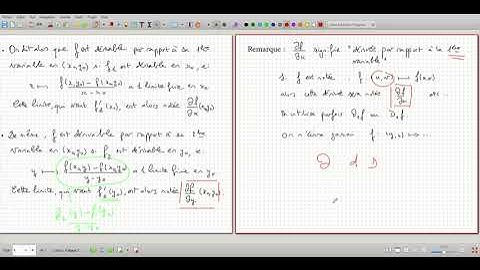 • On dit alors que f est dérivable par rapport à sa 1ère
variable en (x₀,y₀) si f₁ est dérivable en x₀, ie
x ⟼ f(x,y₀) - f(x₀,y₀) / x - x₀ a 1 limite finie en x₀
Cette limite, qui vaut f₁'(x₀), est alors notée ∂f/∂x (x₀,y₀)
• De même, f est dérivable par rapport à sa
variable en (x₀,y₀) si f₂ est dérivable en y₀, ie
y ⟼ f(x₀,y) - f(x₀,y₀) / y - y₀ a 1 limite finie en y₀
Cette limite, qui vaut f₂'(y₀), est alors notée ∂f/∂y (x₀,y₀)
f₂(y) - f₂(y₀) / y - y₀
Remarque : ∂f/∂x signifie "dérivée par rapport à la 1ère
variable"
si f est notée f : (u,v) ⟼ f(u,v)
alors cette dérivée sera notée ∂f/∂u etc..
On utilise parfois
On n'aura jamais f : (y,x) ⟼ ...
∂ d D